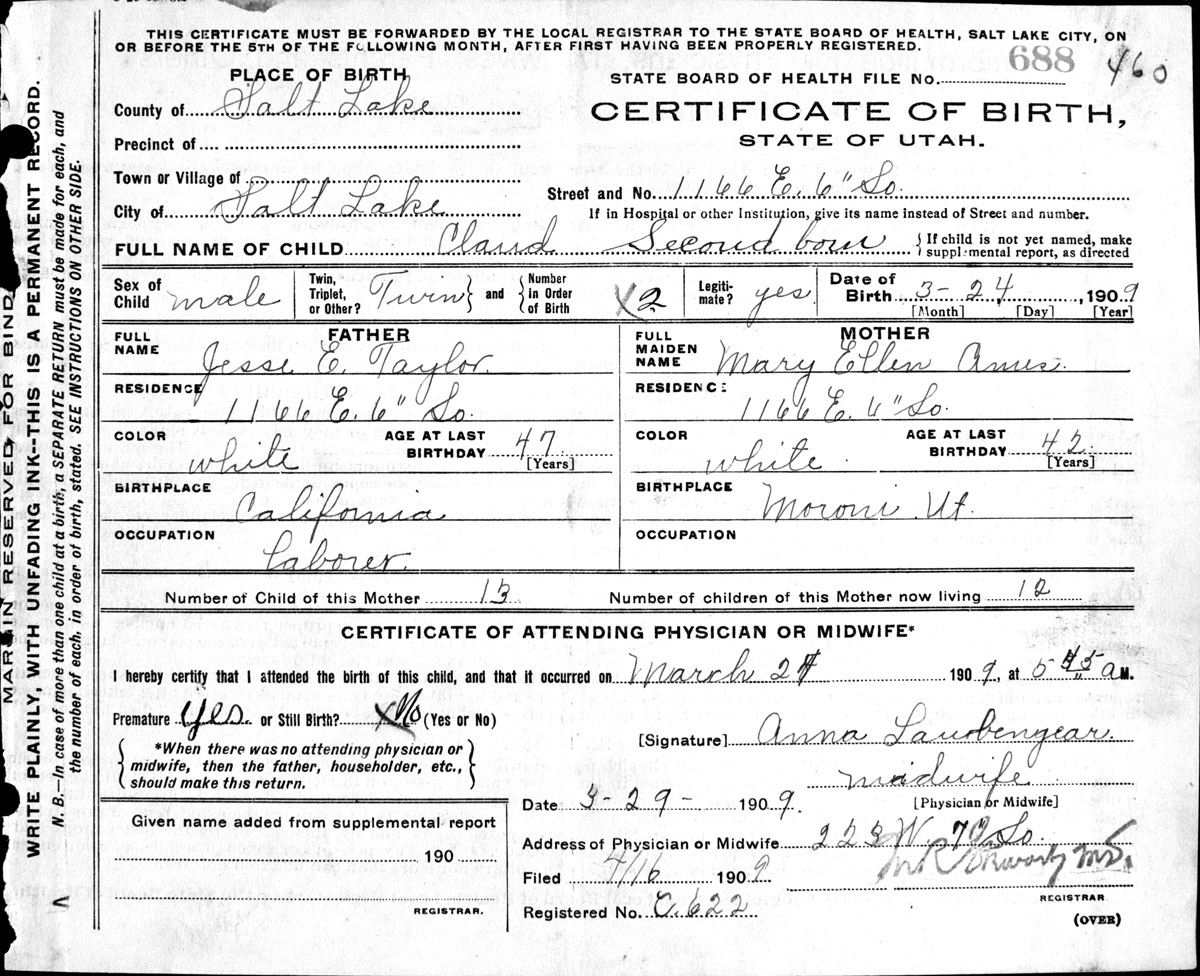 THIS CERTIFICATE MUST BE FORWARDED BY THE LOCAL REGISTRAR TO THE STATE BOARD OF HEALTH, SALT LAKE CITY, ON
OR BEFORE THE 5TH OF THE FOLLOWING MONTH, AFTER FIRST HAVING BEEN PROPERLY REGISTERED.
688 460
PLACE OF BIRTH
STATE BOARD OF HEALTH FILE No.
County of Salt Lake
CERTIFICATE OF BIRTH,
STATE OF UTAH.
Precinct of
Town or Village of
Street and No. 1166 E. 6" So.
City of Salt Lake
If in Hospital or other Institution, give its name instead of Street and number.
FULL NAME OF CHILD Claud Second born {If child is not yet named, make supplemental report, as directed
Sex of Child male Twin, Triplet, or Other? Twin } and { Number in Order of Birth X2 Legitimate? yes Date of Birth 3-24, 1909
[Month] [Day] [Year]
FATHER
MOTHER
FULL NAME Jesse E. Taylor
FULL MAIDEN NAME Mary Ellen
RESIDENCE 1166 E. 6" So.
RESIDENCE 1166 E. 6" So.
COLOR white AGE AT LAST BIRTHDAY 47 [Years]
COLOR white AGE AT LAST BIRTHDAY 42 [Years]
BIRTHPLACE California
BIRTHPLACE Moroni Ut.
OCCUPATION Laborer
OCCUPATION
Number of Child of this Mother 13 Number of children of this Mother now living 12
CERTIFICATE OF ATTENDING PHYSICIAN OR MIDWIFE*
I hereby certify that I attended the birth of this child, and that it occurred on March 24 1909, at 5 45 a M.
Premature yes or Still Birth? X No (Yes or No)
{*When there was no attending physician or midwife, then the father, householder, etc., should make this return.}
[Signature] Anna
midwife
[Physician or Midwife]
Date 3-29- 1909
Given name added from supplemental report
190
REGISTRAR.
Address of Physician or Midwife 223 W. 7th So.
Filed 4/16 1909
M.D.
REGISTRAR
Registered No. C.622
(OVER)
MARGIN RESERVED FOR BIND
WRITE PLAINLY, WITH UNFADING INK--THIS IS A PERMANENT RECORD.
N. B.—In case of more than one child at a birth, a SEPARATE RETURN must be made for each, and
the number of each, in order of birth, stated. SEE INSTRUCTIONS ON OTHER SIDE.